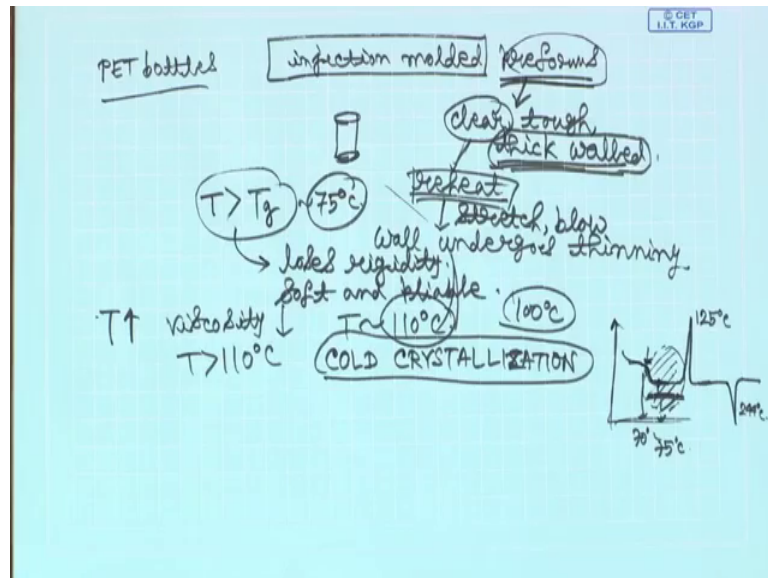 © CET
I.I.T. KGP
PET bottles
injection molded preforms
clear, tough
thick walled.
reheat
T > Tg ~ 75°C
stretch, blow
wall undergoes thinning.
loses rigidity.
soft and pliable.
T↑ viscosity ↓ T ~ 110°C 100°C
T > 110°C COLD CRYSTALLIZATION
125°C
244°C
70°
75°C